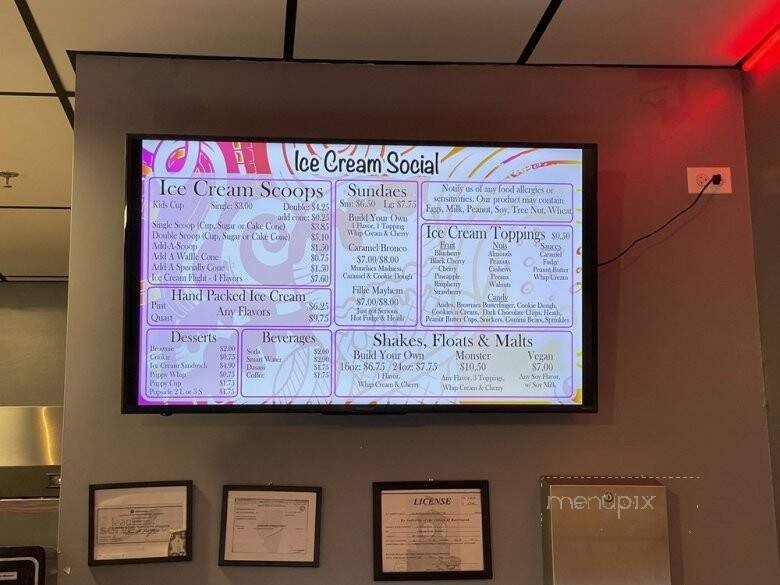 Ice Cream Social
Ice Cream Scoops
Kids Cup Single: $3.00 Double: $4.25
add cone: $0.25
Single Scoop (Cup, Sugar or Cake Cone) $3.85
Double Scoop (Cup, Sugar or Cake Cone) $5.10
Add-A-Scoop $1.50
Add A Waffle Cone $0.75
Add A Specialty Cone $1.50
Ice Cream Flight - 4 Flavors $7.60
Hand Packed Ice Cream
Any Flavors
Pint $6.25
Quart $9.75
Desserts
Brownie $2.00
Cookie $0.75
Ice Cream Sandwich $4.90
Puppy Whip $0.75
Puppy Cup $1.75
Popsicle 2 L or 3 S $1.75
Beverages
Soda $2.00
Smart Water $2.90
Dasani $1.75
Coffee $1.75
Sundaes
Sm: $6.50 Lg: $7.75
Build Your Own
1 Flavor, 1 Topping
Whip Cream & Cherry
Caramel Bronco
$7.00/$8.00
Munchies Madness,
Caramel & Cookie Dough
Fillie Mayhem
$7.00/$8.00
Just got Serious
Hot Fudge & Heath
Notify us of any food allergies or
sensitivities. Our product may contain
Eggs, Milk, Peanut, Soy, Tree Nut, Wheat
Ice Cream Toppings $0.50
Fruit
Blueberry
Black Cherry
Cherry
Pineapple
Raspberry
Strawberry
Nuts
Almonds
Peanuts
Cashews
Pecans
Walnuts
Sauces
Caramel
Fudge
Peanut Butter
Whip Cream
Candy
Andes, Brownies Butterfinger, Cookie Dough,
Cookies n Cream, Dark Chocolate Chips, Heath,
Peanut Butter Cups, Snickers, Gummi Bears, Sprinkles
Shakes, Floats & Malts
Build Your Own
16oz: $6.75 24oz: $7.75
1 Flavor,
Whip Cream & Cherry
Monster
$10.50
Any Flavor, 3 Toppings,
Whip Cream & Cherry
Vegan
$7.00
Any Soy Flavor,
w/ Soy Milk
LICENSE
menupix